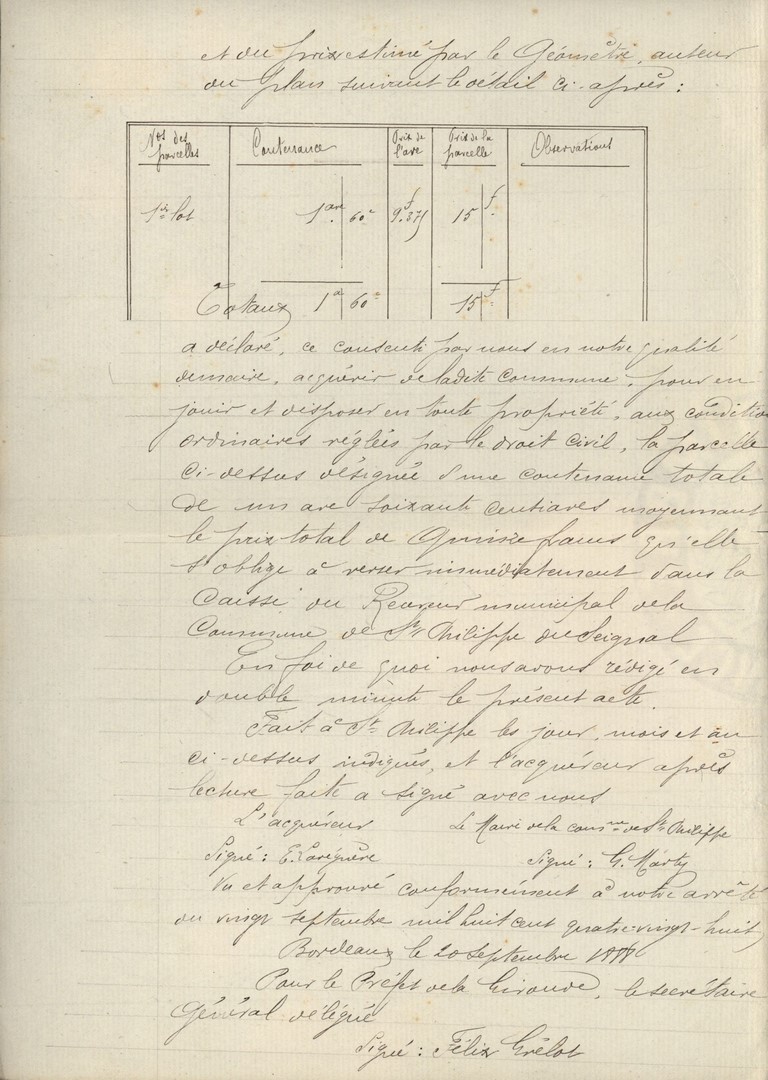 et du prix estimé par le Géomètre, auteur
du plan suivant le détail ci-après :
Nos des parcelles | Contenance | Prix de l'are | Prix de la parcelle | Observations
1er lot | 1 are 60c | 9f.375 | 15 f.
Totaux 1a 60c | 15 f
a déclaré, ce consenti par nous en notre qualité
de maire, acquérir de ladite Commune, pour en
jouir et disposer en toute propriété, aux condition
ordinaires réglées par le droit civil, la parcelle
ci-dessus désignée d'une contenance totale
de un are soixante centiares moyennant
le prix total de Quinze francs qu'elle
s'oblige à verser immédiatement dans la
Caisse du Receveur municipal de la
Commune de St Philippe du Seignal
En foi de quoi nous avons rédigé en
double minute le présent acte.
Fait à St Philippe les jour, mois et an
ci-dessus indiqués, et l'acquéreur après
lecture faite a signé avec nous
L'acquéreur Le Maire de la comune de St Philippe
Signé : E. Laréguère Signé : G. Marty
Vu et approuvé conformément à notre arrêté
du vingt septembre mil huit cent quatre-vingt-huit
Bordeaux le 20 septembre 1888
Pour le Préfet de la Gironde, le secrétaire
Général délégué
Signé : Félix Grélot